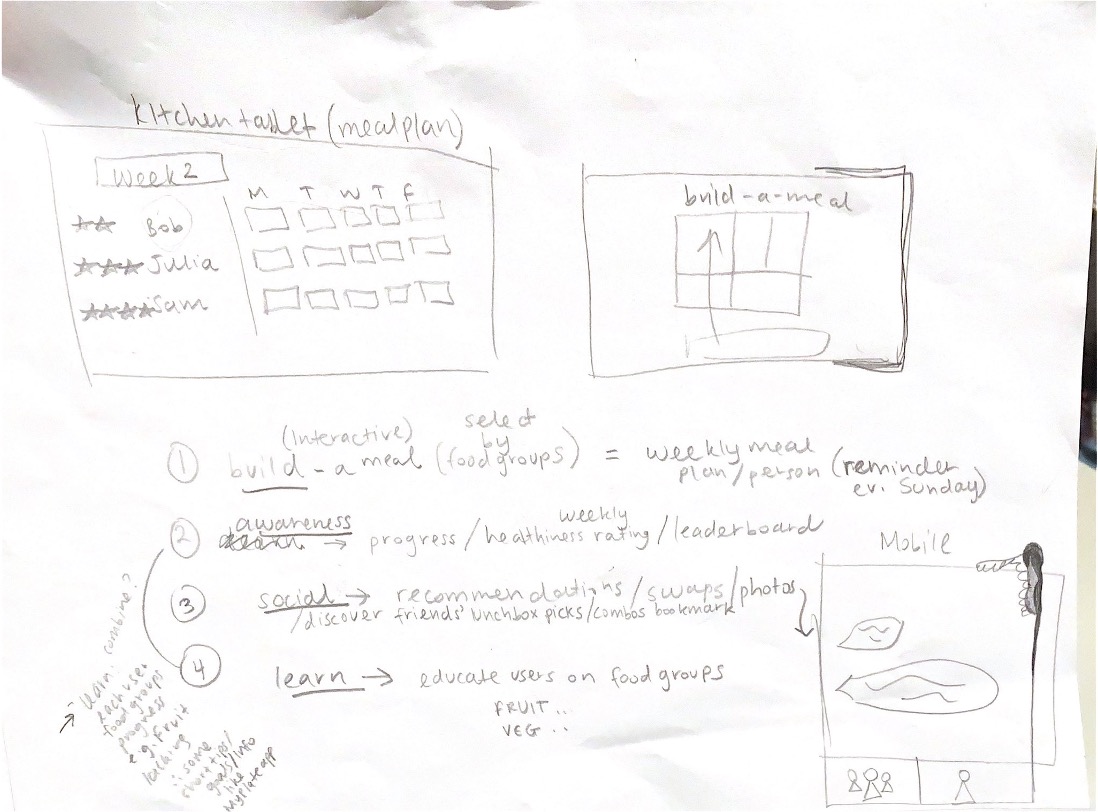 Kitchen tablet (mealplan)
Week 2
M T W T F
Bob
Julia
Sam
build-a-meal
(Interactive)
select
by
1 build-a meal (foodgroups) = weekly meal
plan/person (reminder
ev. Sunday)
awareness
weekly
2 learn → progress / healthiness rating / leaderboard
3 social → recommendations / swaps / photos
/discover friends' lunchbox picks/combos bookmark
4 learn → educate users on food groups
FRUIT ..
VEG ..
Mobile
combine?
learn:
each user
food groups
progress
e.g. fruit
lacking
some
short tips/
goals/info
like
Myplate app